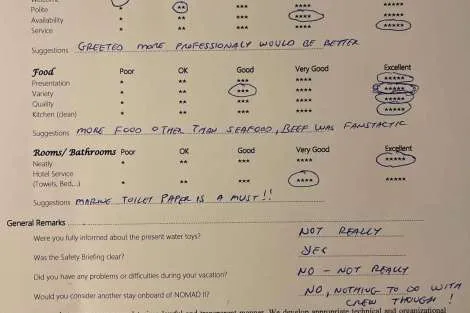 Polite * ** *** **** *****
Availability * ** *** **** *****
Service * ** *** **** *****
Suggestions GREETED MORE PROFESSIONALY WOULD BE BETTER
Food Poor OK Good Very Good Excellent
Presentation * ** *** **** *****
Variety * ** *** **** *****
Quality * ** *** **** *****
Kitchen (clean) * ** *** **** *****
Suggestions MORE FOOD OTHER THAN SEAFOOD, BEEF WAS FANSTACTIC
Rooms/ Bathrooms Poor OK Good Very Good Excellent
Neatly * ** *** **** *****
Hotel Service
(Towels, Bed,...) * ** *** **** *****
Suggestions MARINE TOILET PAPER IS A MUST!!
General Remarks
Were you fully informed about the present water toys? NOT REALLY
Was the Safety Briefing clear? YES
Did you have any problems or difficulties during your vacation? NO - NOT REALLY
Would you consider another stay onboard of NOMAD II? NO, NOTHING TO DO WITH
CREW THOUGH!
lawful and transparent manner. We develop appropriate technical and organizational